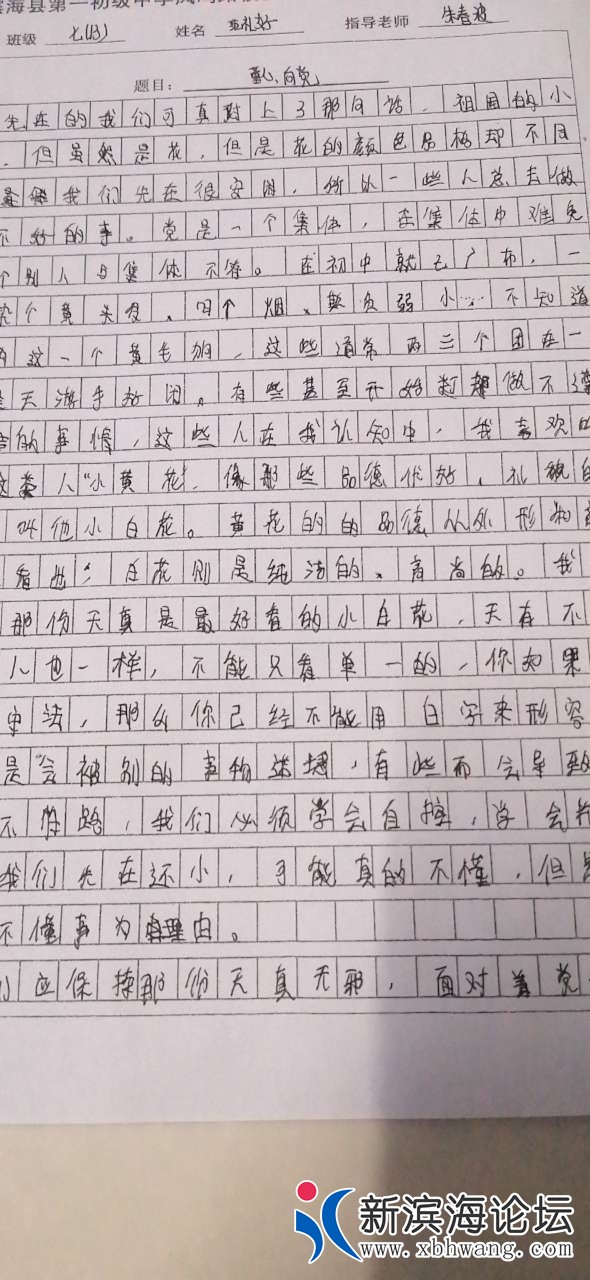 滨海县第一初级中学
班级 七(13) 姓名 指导老师 朱春波
题目： 童心向党
先在的我们可真对上了那句话，祖国的小
，但虽然是花，但是花的颜色品格却不同
我们先在很安闲，所以一些人总去做
不好的事。党是一个集体，在集体中难免
个别人与集体不符。在初中就已广布，一
个黄头发、叼个烟、欺负弱小……不知道
这一个黄毛别，这些通常两三个团在一
天游手好闲。有些甚至开始打架做不
的事情，这些人在我认知中，我喜欢叫
这类人“小黄花”，像那些品德优好，礼貌的
叫他小白花。黄花的的品德从外形和
看出；白花则是纯洁的、高尚的。我
那份天真是最好看的小白花，天有不
人也一样，不能只看单一的，你如果
，那么你已经不能用白字来形容
是会被别的事物迷，有些而会导致
不胜路，我们必须学会自控，学会
我们先在还小，可能真的不懂，但是
不懂事为理由。
们应保持那份天真无邪，面对党
新滨海论坛
www.xbhwang.com